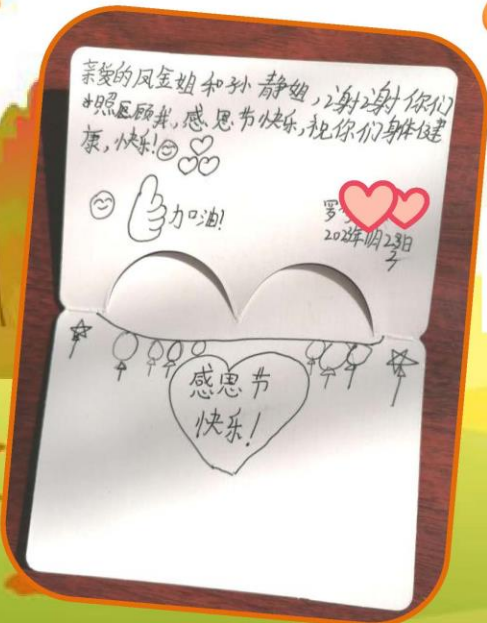 亲爱的凤金姐和孙静姐,谢谢你们
照顾我,感恩节快乐,祝你们身体健
康,快乐!
加油!
罗
2023年11月23日
感恩节
快乐!